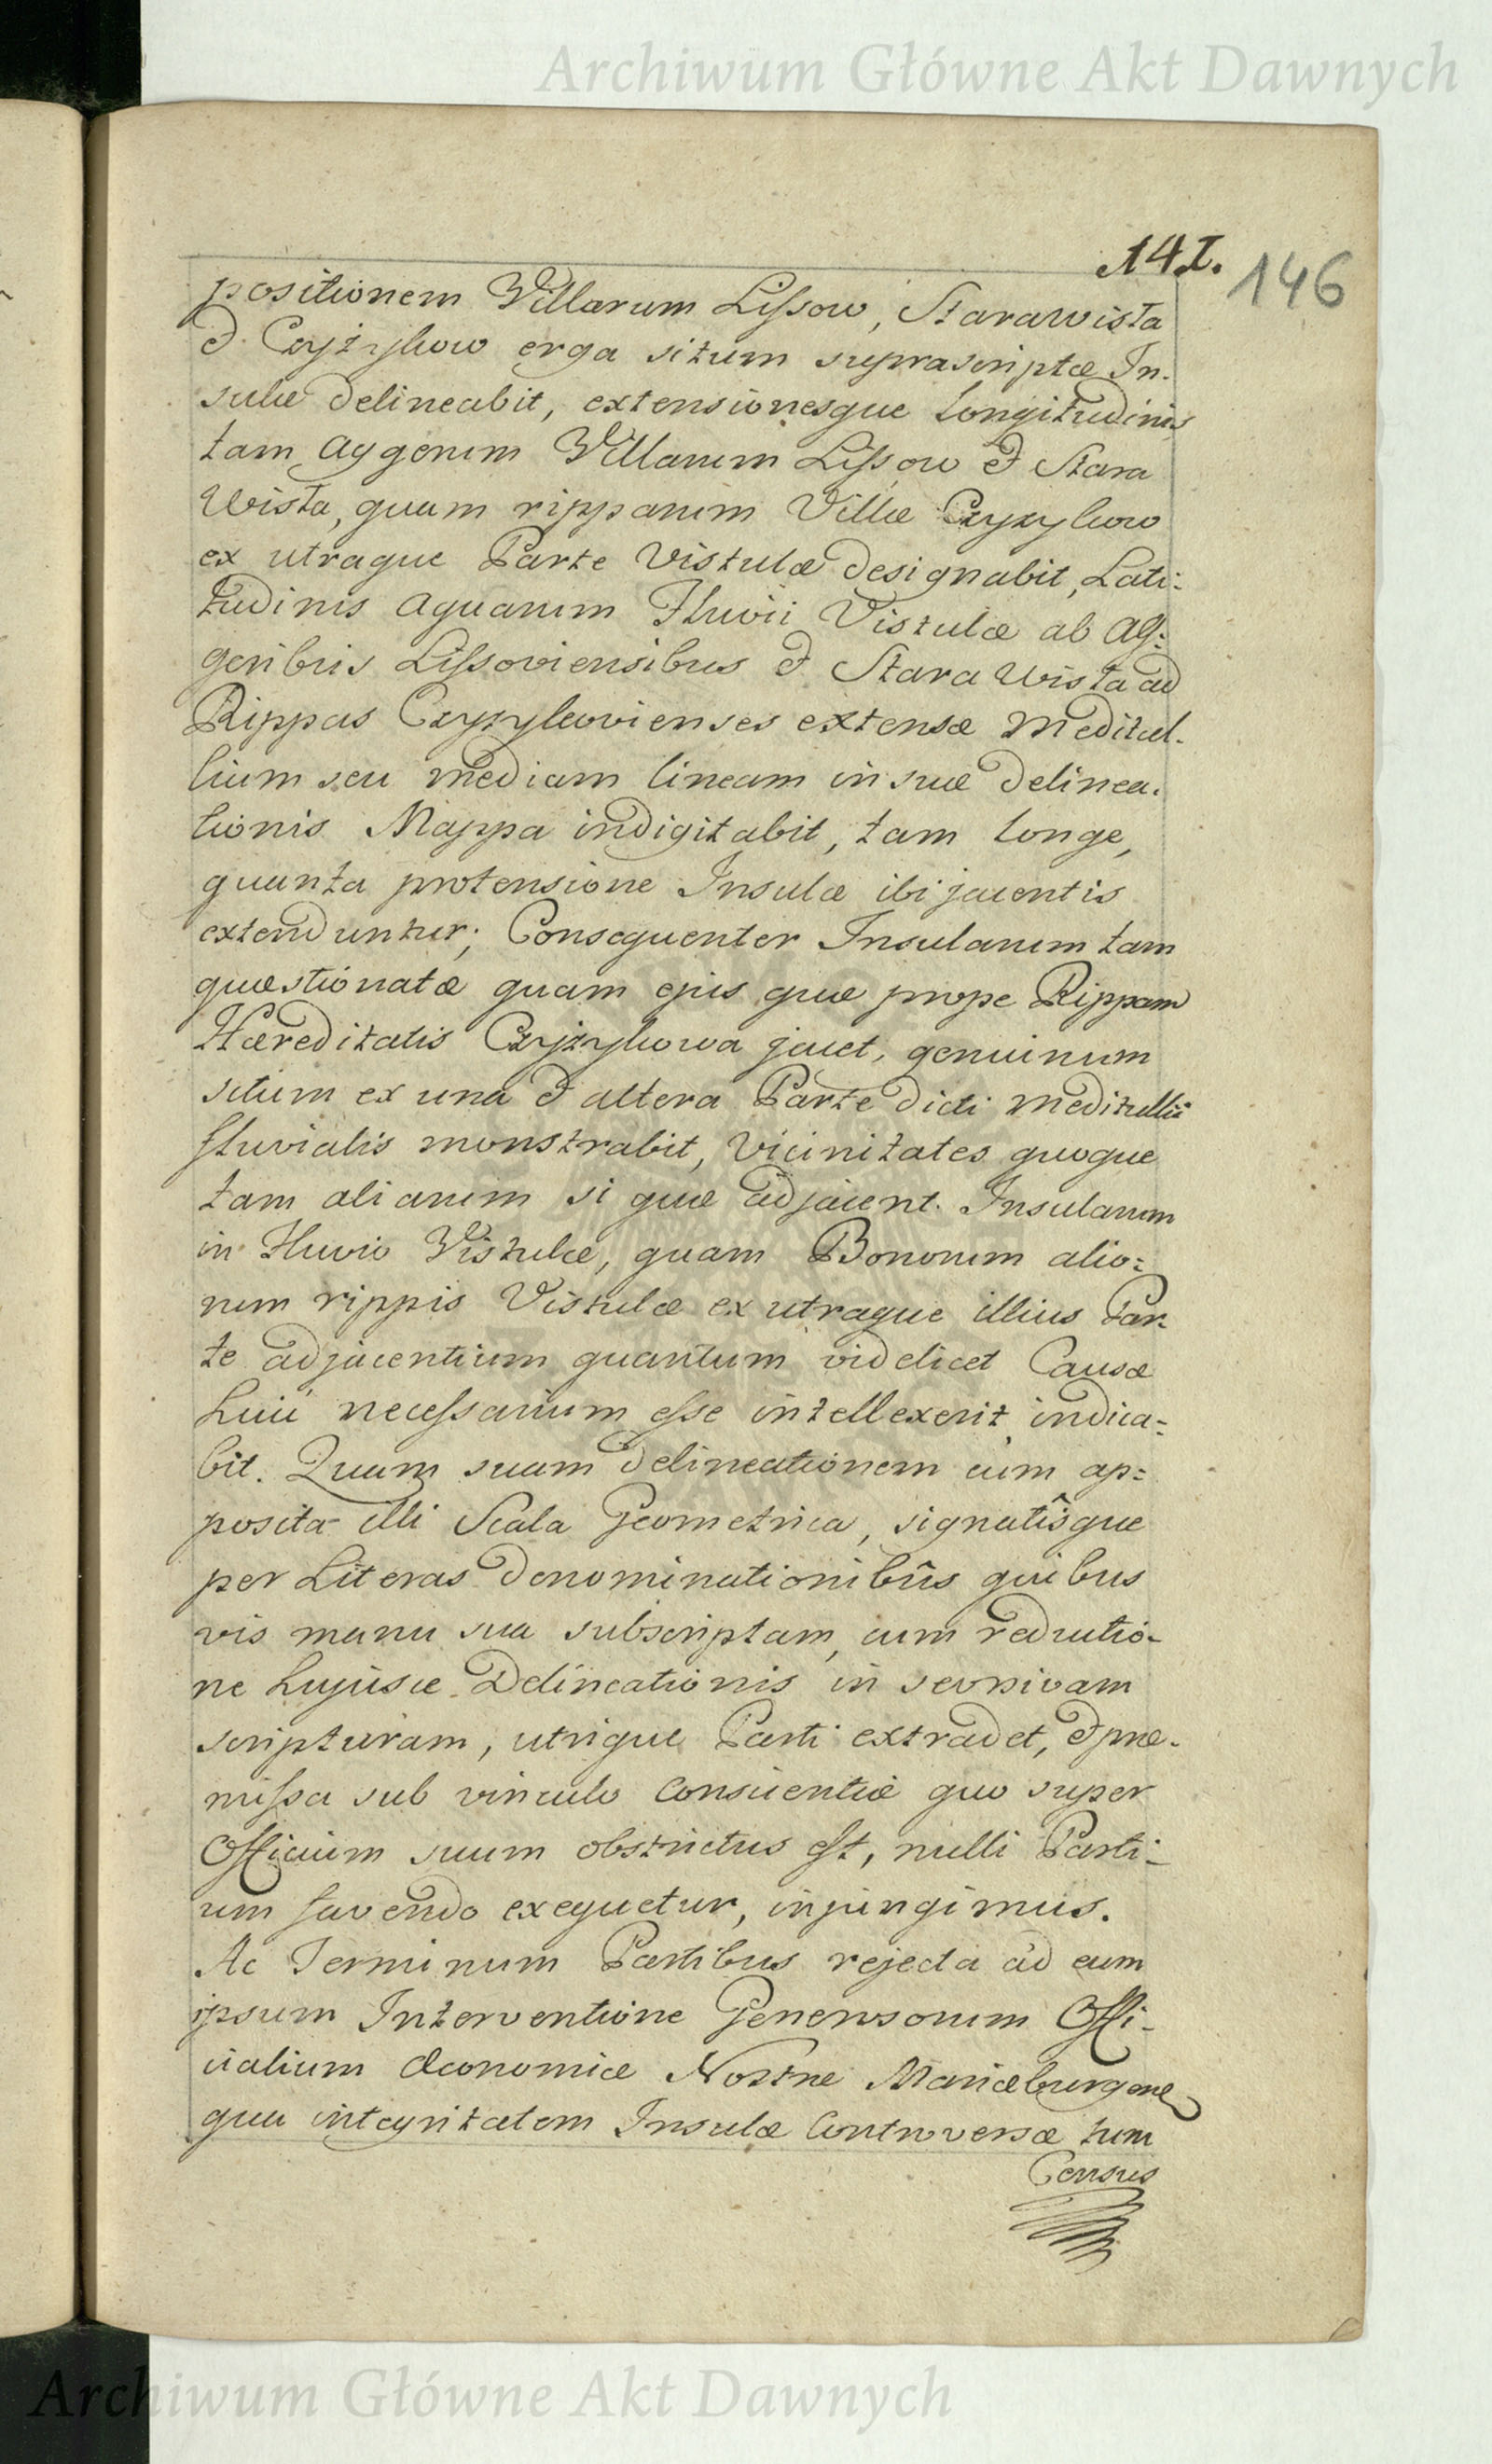 Archiwum Główne Akt Dawnych
141. 146
positionem Villarum Lissow, Starawista
& Czyżykow erga situm suprascriptæ In-
sulæ delineabit, extensionesque Longitudinis
tam Aggerum Villarum Lissow & Stara
Wista, quam ripparum Villæ Czyzykow
ex utraque Parte Vistulæ designabit, Lati=
tudinis Aquarum Fluvii Vistulæ ab Ag=
geribus Lissoviensibus & Stara Wista ad
Rippas Czyzykovienses extensæ Meditul-
lium seu mediam lineam in suæ delinea-
tionis Mappa indigitabit, tam longe,
quanta protensione Insulæ ibi jacentis
extenduntur; Consequenter Insularum tam
quæstionatæ quam ejus quæ prope Rippam
Hæreditatis Czyżykowa jacet, genuinum
situm ex una & altera Parte dicti Meditullii
fluvialis monstrabit, Vicinitates quoque
tam aliarum si quæ adjacent Insularum
in Fluvio Vistulæ, quam Bonorum alio=
rum rippis Vistulæ ex utraque illius Par-
te adjacentium quantum videlicet Causæ
huic necessarium esse intellexerit, indica=
bit. Quam suam delineationem cum ap=
posita illi Scala Geometrica, signatîsque
per Literas denominationibûs quibus
vis manu sua subscriptam, cum reductio-
ne hujusce Delineationis in
scripturam, utrique Parti extradet, & præ-
missa sub vinculo Conscientiæ quo super
Officium suum obstrictus est, nulli Parti-
um favendo exequetur, injungimus.
Ac Terminum Partibus rejecta ad eum
ipsum Interventione Generosorum Offi-
cialium Œconomiæ Nostræ Mariæburgen
qua integritatem Insulæ Controversæ tum
Census
Archiwum Główne Akt Dawnych